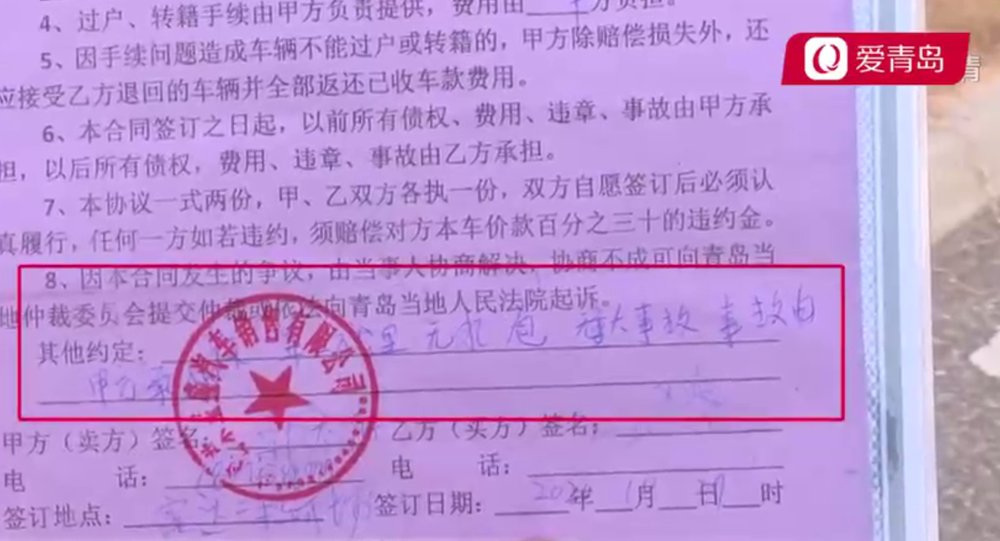 4、过户、转籍手续由甲方负责提供，费用由 方负担。
5、因手续问题造成车辆不能过户或转籍的，甲方除赔偿损失外，还
应接受乙方退回的车辆并全部返还已收车款费用。
6、本合同签订之日起，以前所有债权、费用、违章、事故由甲方承
担，以后所有债权，费用、违章、事故由乙方承担。
7、本协议一式两份，甲、乙双方各执一份，双方自愿签订后必须认
真履行，任何一方如若违约，须赔偿对方本车价款百分之三十的违约金。
8、因本合同发生的争议，由当事人协商解决，协商不成可向青岛当
地仲裁委员会提交仲裁或依法向青岛当地人民法院起诉。
其他约定： 大事故 事故由
甲方
汽车销售有限公司
甲方（卖方）签名： 乙方（买方）签名：
电 话： 电 话：
签订地点： 签订日期： 年 月 日 时
爱青岛